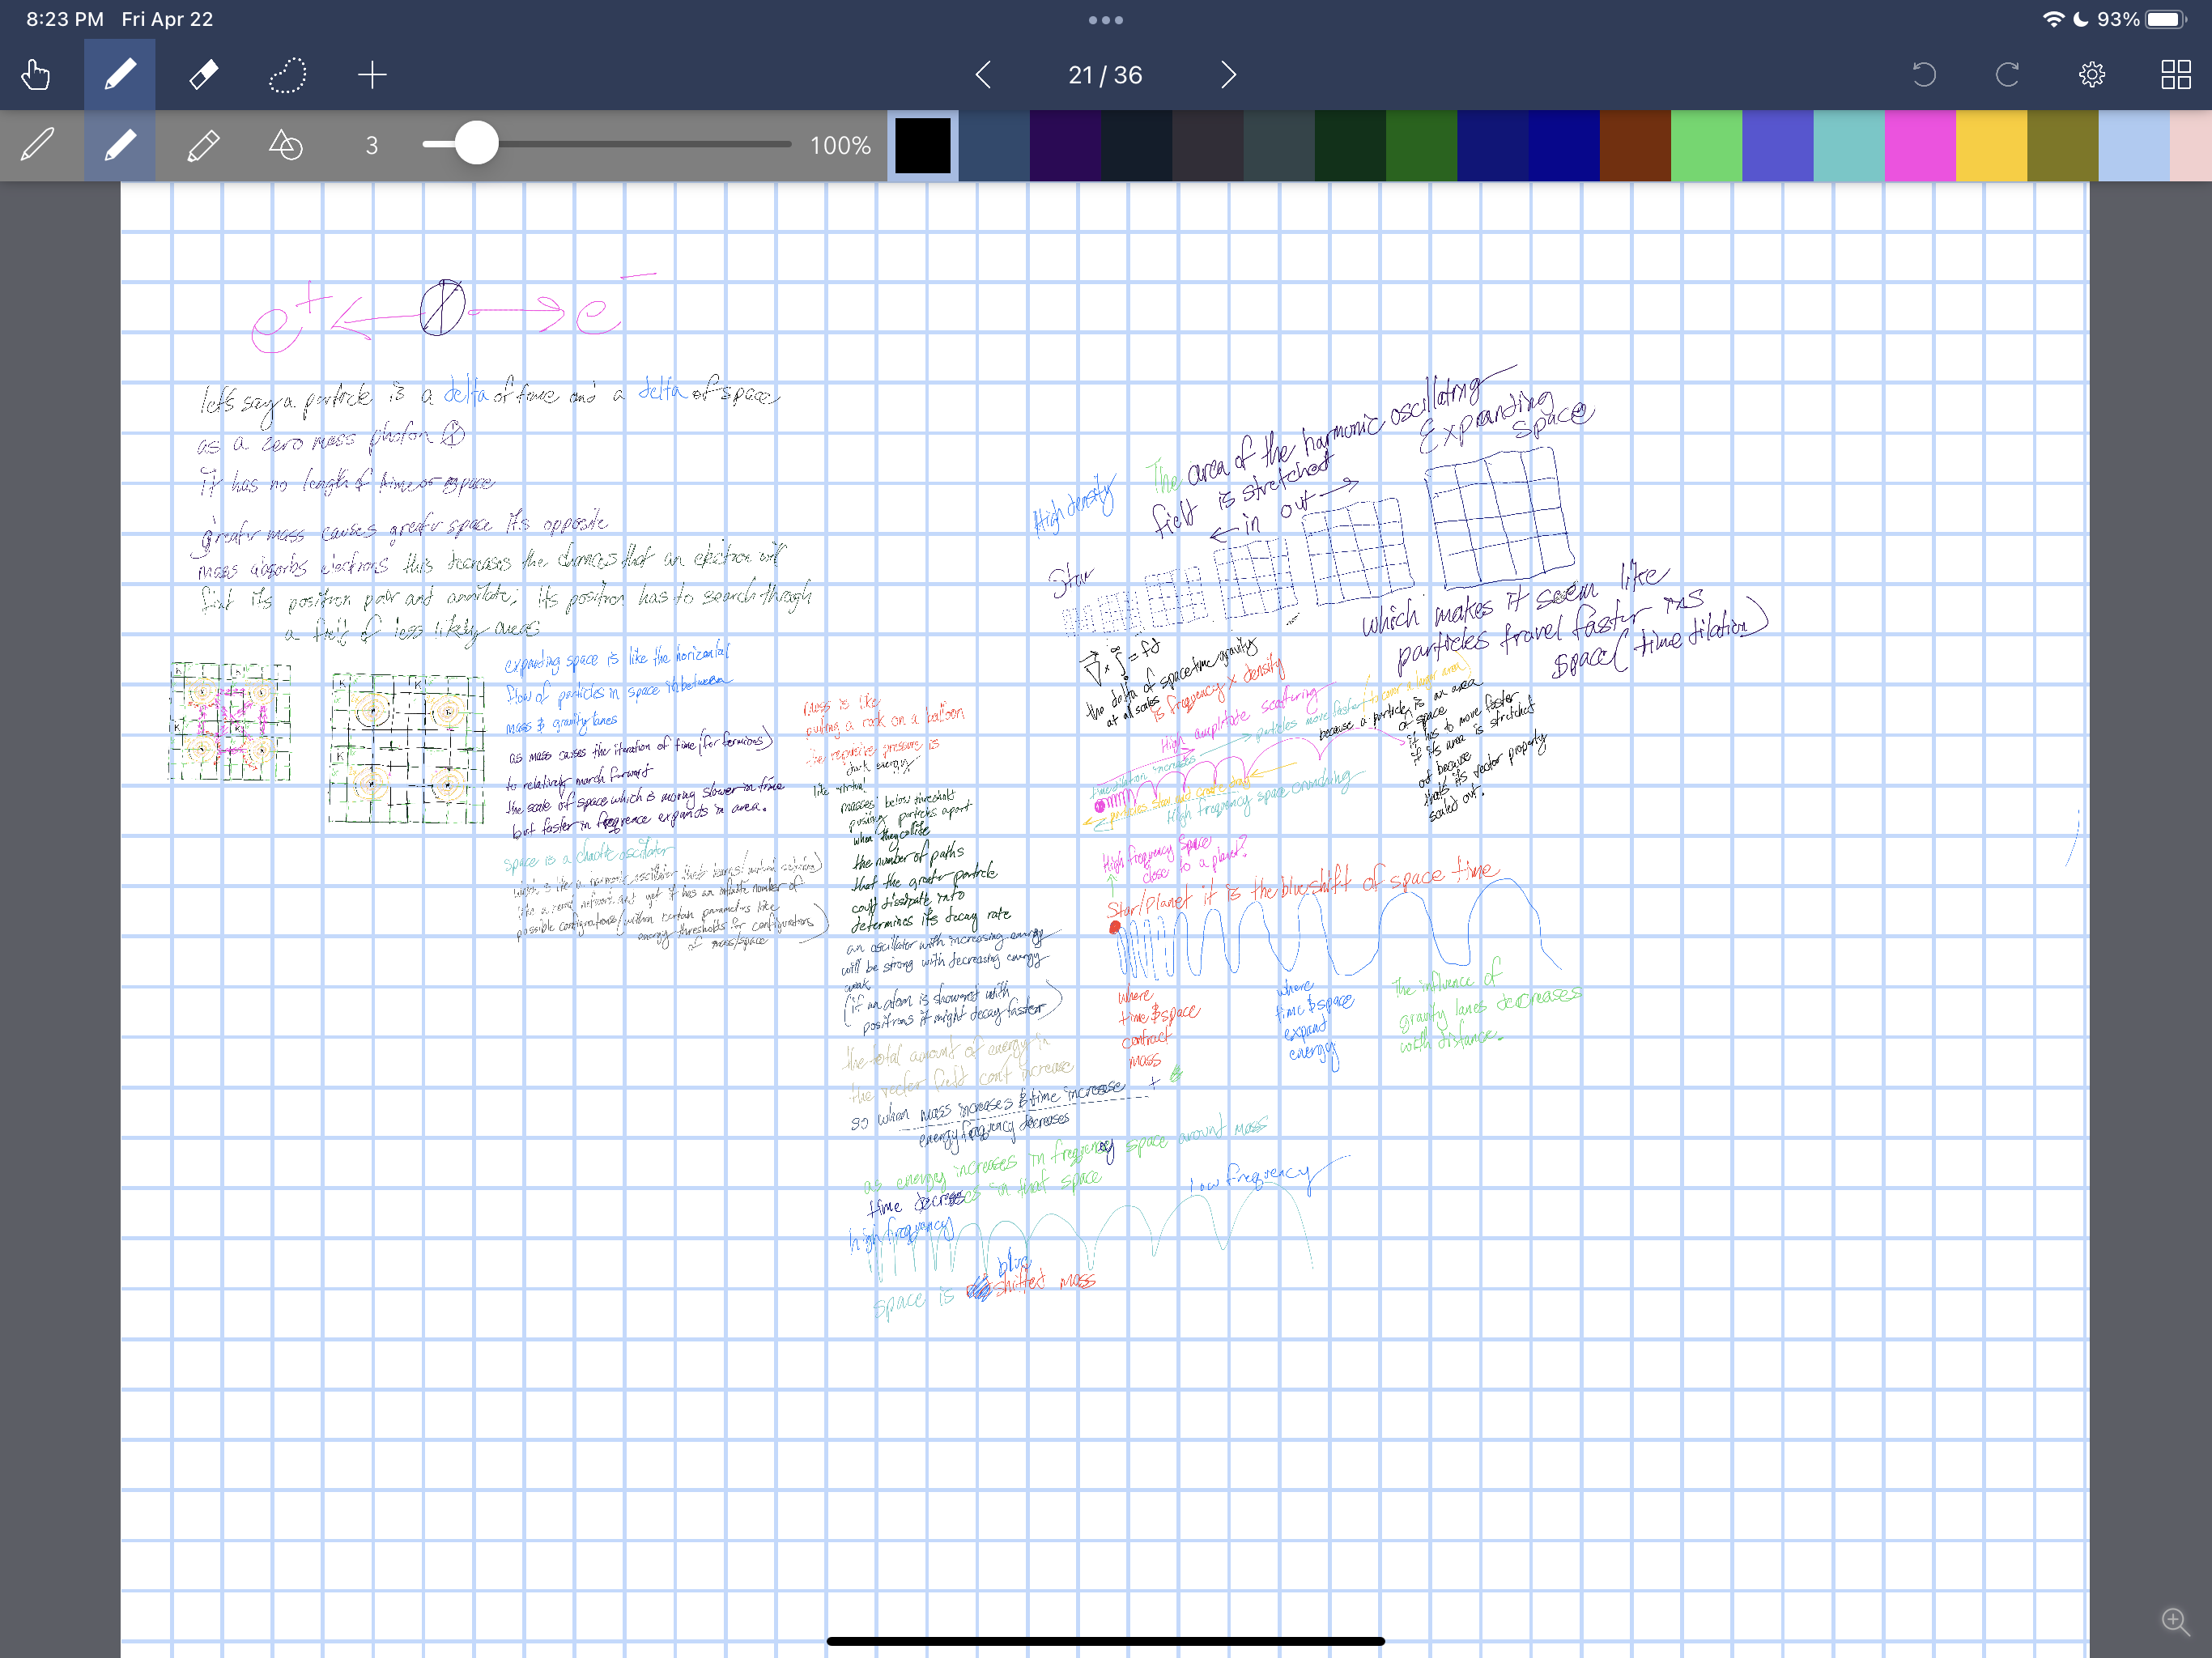 8:23 PM Fri Apr 22
93%
21 / 36
3
100%
e+ ← → e-
let's say a particle is a delta of time and a delta of space
as a zero mass photon
it has no length of time or space
greater mass causes greater space its opposite
mass absorbs electrons this decreases the chances that an electron will
find its position pair and annilate; its position has to search through
a field of less likely areas
expanding space is like the horizontal
flow of particles in space in between
mass & gravity lanes
as mass causes the iteration of time (for fermions)
to relatively march forward
the scale of space which is moving slower in time
but faster in freqrence expands in area.
space is a chaotic oscillator
which is like a harmonic oscillator that learns
like a neural network and yet it has an infinite number of
possible configurations (within certain parameters like
energy thresholds for configurations
of mass/space
mass is like
putting a rock on a balloon
the repulsive pressure is
dark energy
like virtual
masses below threshold
pushing particles apart
when they collide
the number of paths
that the greater particle
could dissipate into
determines its decay rate
an oscillator with increasing energy
will be strong with decreasing energy
weak
(if an atom is showered with
positrons it might decay faster)
the total amount of energy in
the vector field cant increase
so when mass increases & time increase +
energy frequency decreases
as energy increases in frequency space around mass
time decreases in that space
high frequency
low frequency
blue
space is shifted mass
High density
The area of the harmonic oscillating
field is stretched
← in out →
Expanding
space
Star
which makes it seem like
particles travel faster in
space (time dilation)
the delta of spacetime gravity
at all scales
is frequency x density
High amplitude scattering
particles move faster (to cover a larger area)
because a particle is an area
of space
it has to move faster
if its area is stretched
out because
that's its vector property
scaled out.
time dilation increases
particles slow and create drag
High frequency space crunching
High frequency space
close to a planet?
Star/Planet it is the blueshift of space time
where
time & space
contract
mass
where
time & space
expand
energy
The influence of
gravity lanes decreases
with distance.